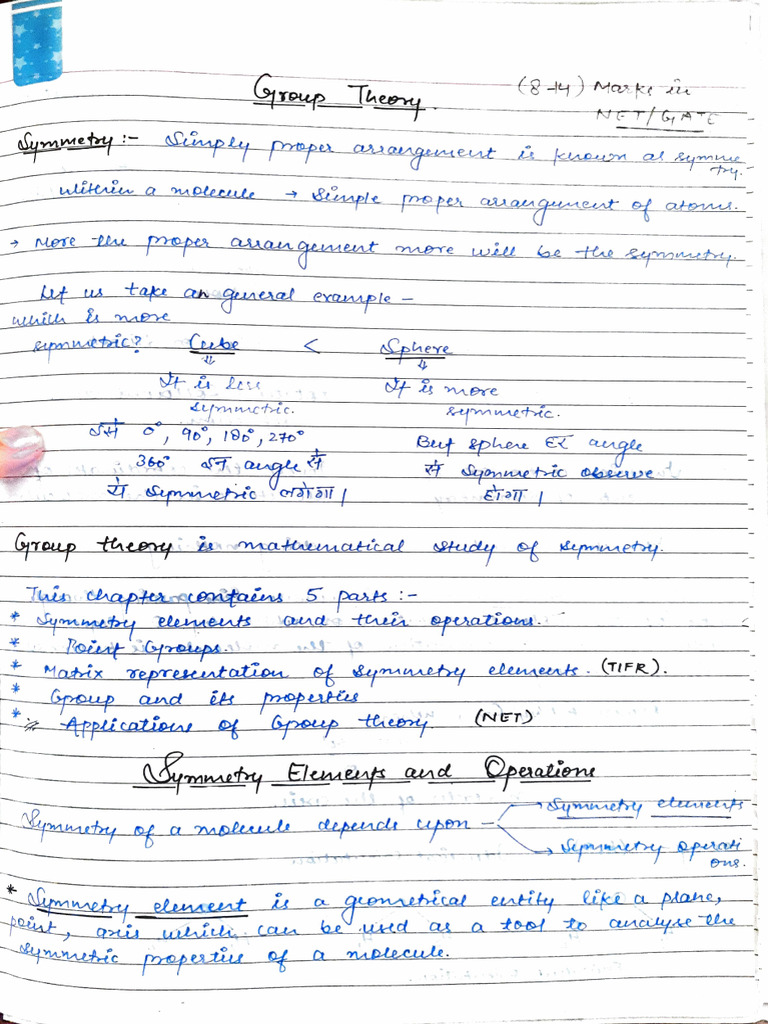 Group Theory.
(8-14) Marks in
NET/GATE
Symmetry :- Simply proper arrangement is known as symme
try.
within a molecule → simple proper arrangement of atoms.
→ More the proper arrangement more will be the symmetry.
Let us take an general example –
which is more
symmetric? Cube < Sphere
⇓ ⇓
It is less It is more
symmetric. symmetric.
0°, 90°, 180°, 270° But sphere हर angle
360° इन angle से से symmetric observe
symmetric लगेगा। होगा।
Group theory is mathematical study of symmetry.
This chapter contains 5 parts :-
* Symmetry elements and their operations.
* Point Groups.
* Matrix representation of symmetry elements. (TIFR).
* Group and its properties
* Applications of Group theory (NET)
Symmetry Elements and Operations
Symmetry of a molecule depends upon – Symmetry elements
Symmetry operati
ons.
* Symmetry element is a geometrical entity like a plane,
point, axis which can be used as a tool to analyse the
symmetric properties of a molecule.